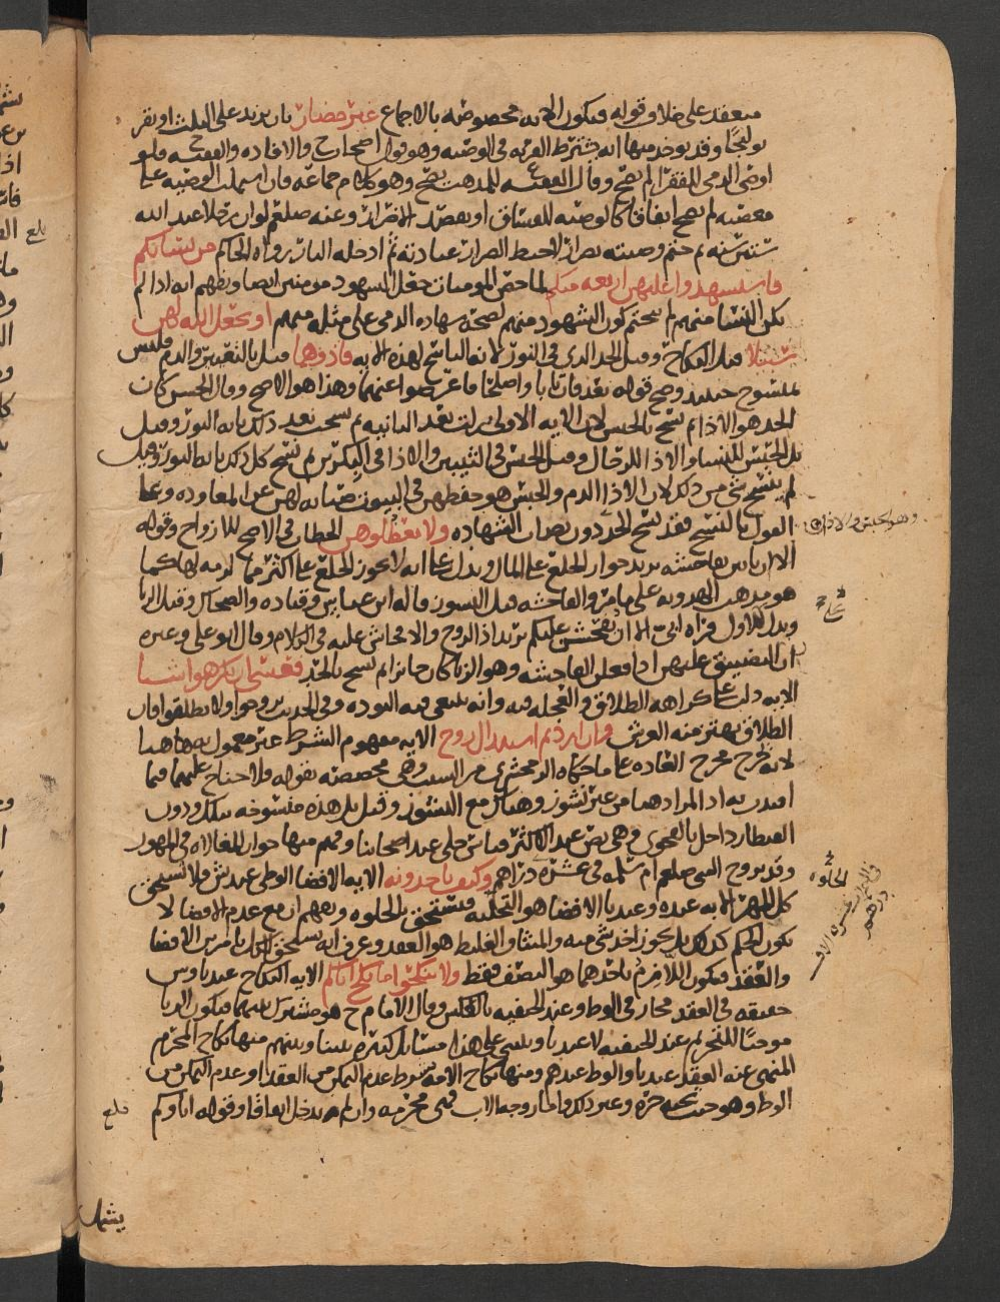 منعقد على خلاف قوله فتكون الآيه مخصوصه بالاجماع غير مضار بان يزيد على الثلث او يقر
وقد يوخذ منها انه يشترط القربه في الوصيه وهو قول اصحابنا والافاده والفقه فلو
اوصى الذمي للفقرا لم تصح وقال الفقيه للمذهب تصح وهو كلام جماعه فان اشتملت الوصيه على
معصيه لم تصح اتفاقا كالوصيه للفساق او بقصد الاضرار وعنه صلعم لو ان رجلا عبد الله
ستين سنه ثم ختم وصيته بضرار لاحبط الضرار عبادته ثم ادخله النار رواه الحاكم من نسايكم
فاستشهدوا عليهن اربعه منكم لما خص المومنات جعل الشهود مومنين ايضا ويفهم انه اذا لم
يكن النسا منهم لم يتحتم كون الشهود منهم لصحه شهاده الذمي على مثله منهم او يجعل الله لهن
سبيلا قيل النكاح وقيل الحد الذي في النور لانه الناسخ لهذه الايه فاذوهما قيل بالتعيير والذم فليس
بمنسوخ حينئذ وصح قوله بعد فان تابا واصلحا فاعرضوا عنهما وهذا هو الاصح وقال الحسن كان
الحد هو الاذا ثم نسخ بالحبس لان الايه الاولى نزلت بعد الثانيه ثم نسخت بعد ذلك بايه النور وقيل
بل الحبس للنسا والاذا للرجال وقيل الحبس في الثيبين والاذا في البكرين ثم نسخ كل ذلك بايه النور وقيل
لم ينسخ شي من ذلك لان الاذا الذم والحبس هو حفظهن في البيوت صيانه لهن عن المعاوده وعلى
القول بالنسخ فقد نسخ الحد دون نصاب الشهاده ولا تعضلوهن الخطاب في الاصح للازواج وقوله
وهو الحبس والاذا
الا ان ياتين بفاحشه يريد جواز الخلع على المال ويدل على انه لا يجوز الخلع على اكثر مما لزمه لها كما
هو مذهب الهدويه على ما مر والفاحشه قيل النشوز قاله ابن عباس وقتاده والضحاك وقيل الزنا
ويدل للاول قراه ابي الا ان يفحشن عليكم يريد اذا الزوج والافحاش عليه في الكلام وقال ابو علي وغيره
ان التضييق عليهن اذا فعلن الفاحشه وهو الزنا كان جايزا ثم نسخ بالحد فعسى ان تكرهوا شيا
الايه دلت على كراهه الطلاق والعجله فيه وانه ينبغي فيه التوده وفي الحديث تزوجوا ولا تطلقوا فان
الطلاق يهتز منه العرش وان اردتم استبدال زوج الايه مفهوم الشرط غير معمول به هاهنا
لانه خرج مخرج العاده على ما حكاه الزمخشري وهي مخصصه بقوله فلا جناح عليهما فيما
افتدت به اذ المراد هنا من غير نشوز وهناك مع النشوز وقيل بل هذه منسوخه بتلك ودون
القنطار داخل بالفحوى وهي نص عند الاكثر قياس جلي عند اصحابنا وفهم منها جواز المغالاه في المهور
وقد تزوج النبي صلعم ام سلمه في عشره دراهم وكيف تاخذونه الايه الافضا الوطي عند ش فلا تستحق
كل المهر الا به عنده وعندنا الافضا هو التخليه فتستحق بالخلوه ويفهم ان مع عدم الافضا لا
يكون الحكم كذلك بل يجوز اخذ شي منه والميثاق الغليظ هو العقد
والعقد فيكون اللازم باحدهما هو النصف فقط ولا تنكحوا ما نكح اباكم الايه النكاح عندنا وش
حقيقه في العقد مجاز في الوطء وعند الحنفيه بالعكس وقال الامام ح هو مشترك بينهما فيكون الزنا
موجبا للتحريم عند الحنفيه لا عندنا وينبني على هذا مسايل كثيره بيننا وبينهم منها نكاح المحرم
المنهي عنه العقد عندنا والوطء عندهم ومنها نكاح الامه شرط عدم التمكن من العقد او عدم التمكن من
الوطء وهو حيث تحته حره وغير ذلك واما زوجه الاب فهي محرمه وان لم يدخل اتفاقا وقوله اباوكم